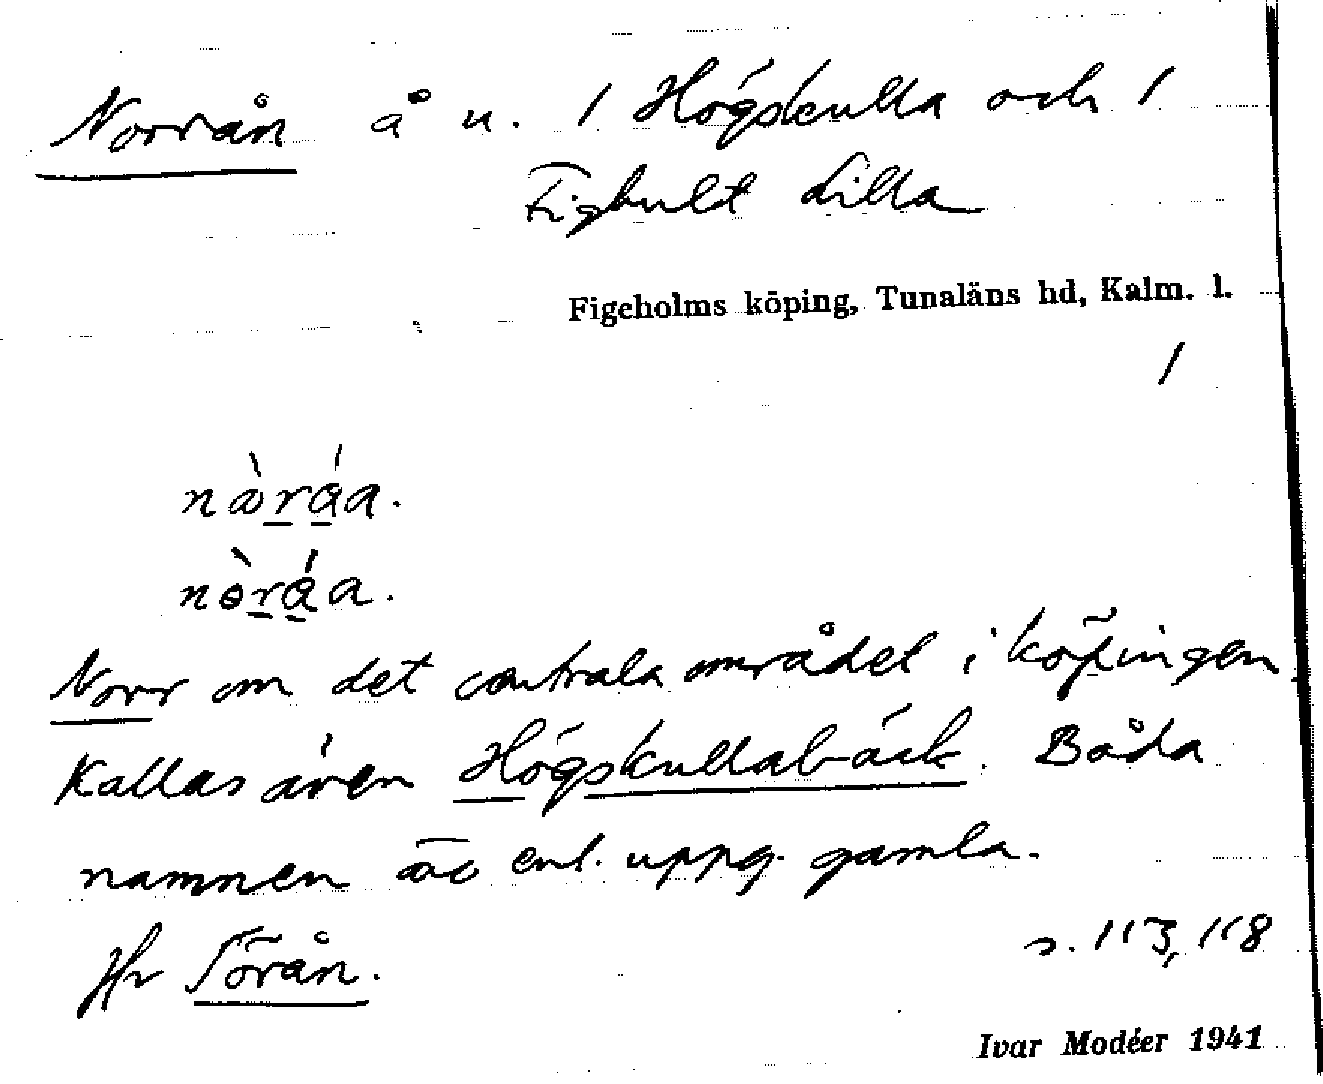 Norrån å n. 1 Högskulla och 1
Fighult Lilla
Figeholms köping, Tunaläns hd, Kalm. l.
1
Norr om det centrala området i köpingen
Kallas även Högskullabäck. Båda
namnen äro enl. uppg. gamla.
Jfr Sörån. s. 113, 118
Ivar Modéer 1941